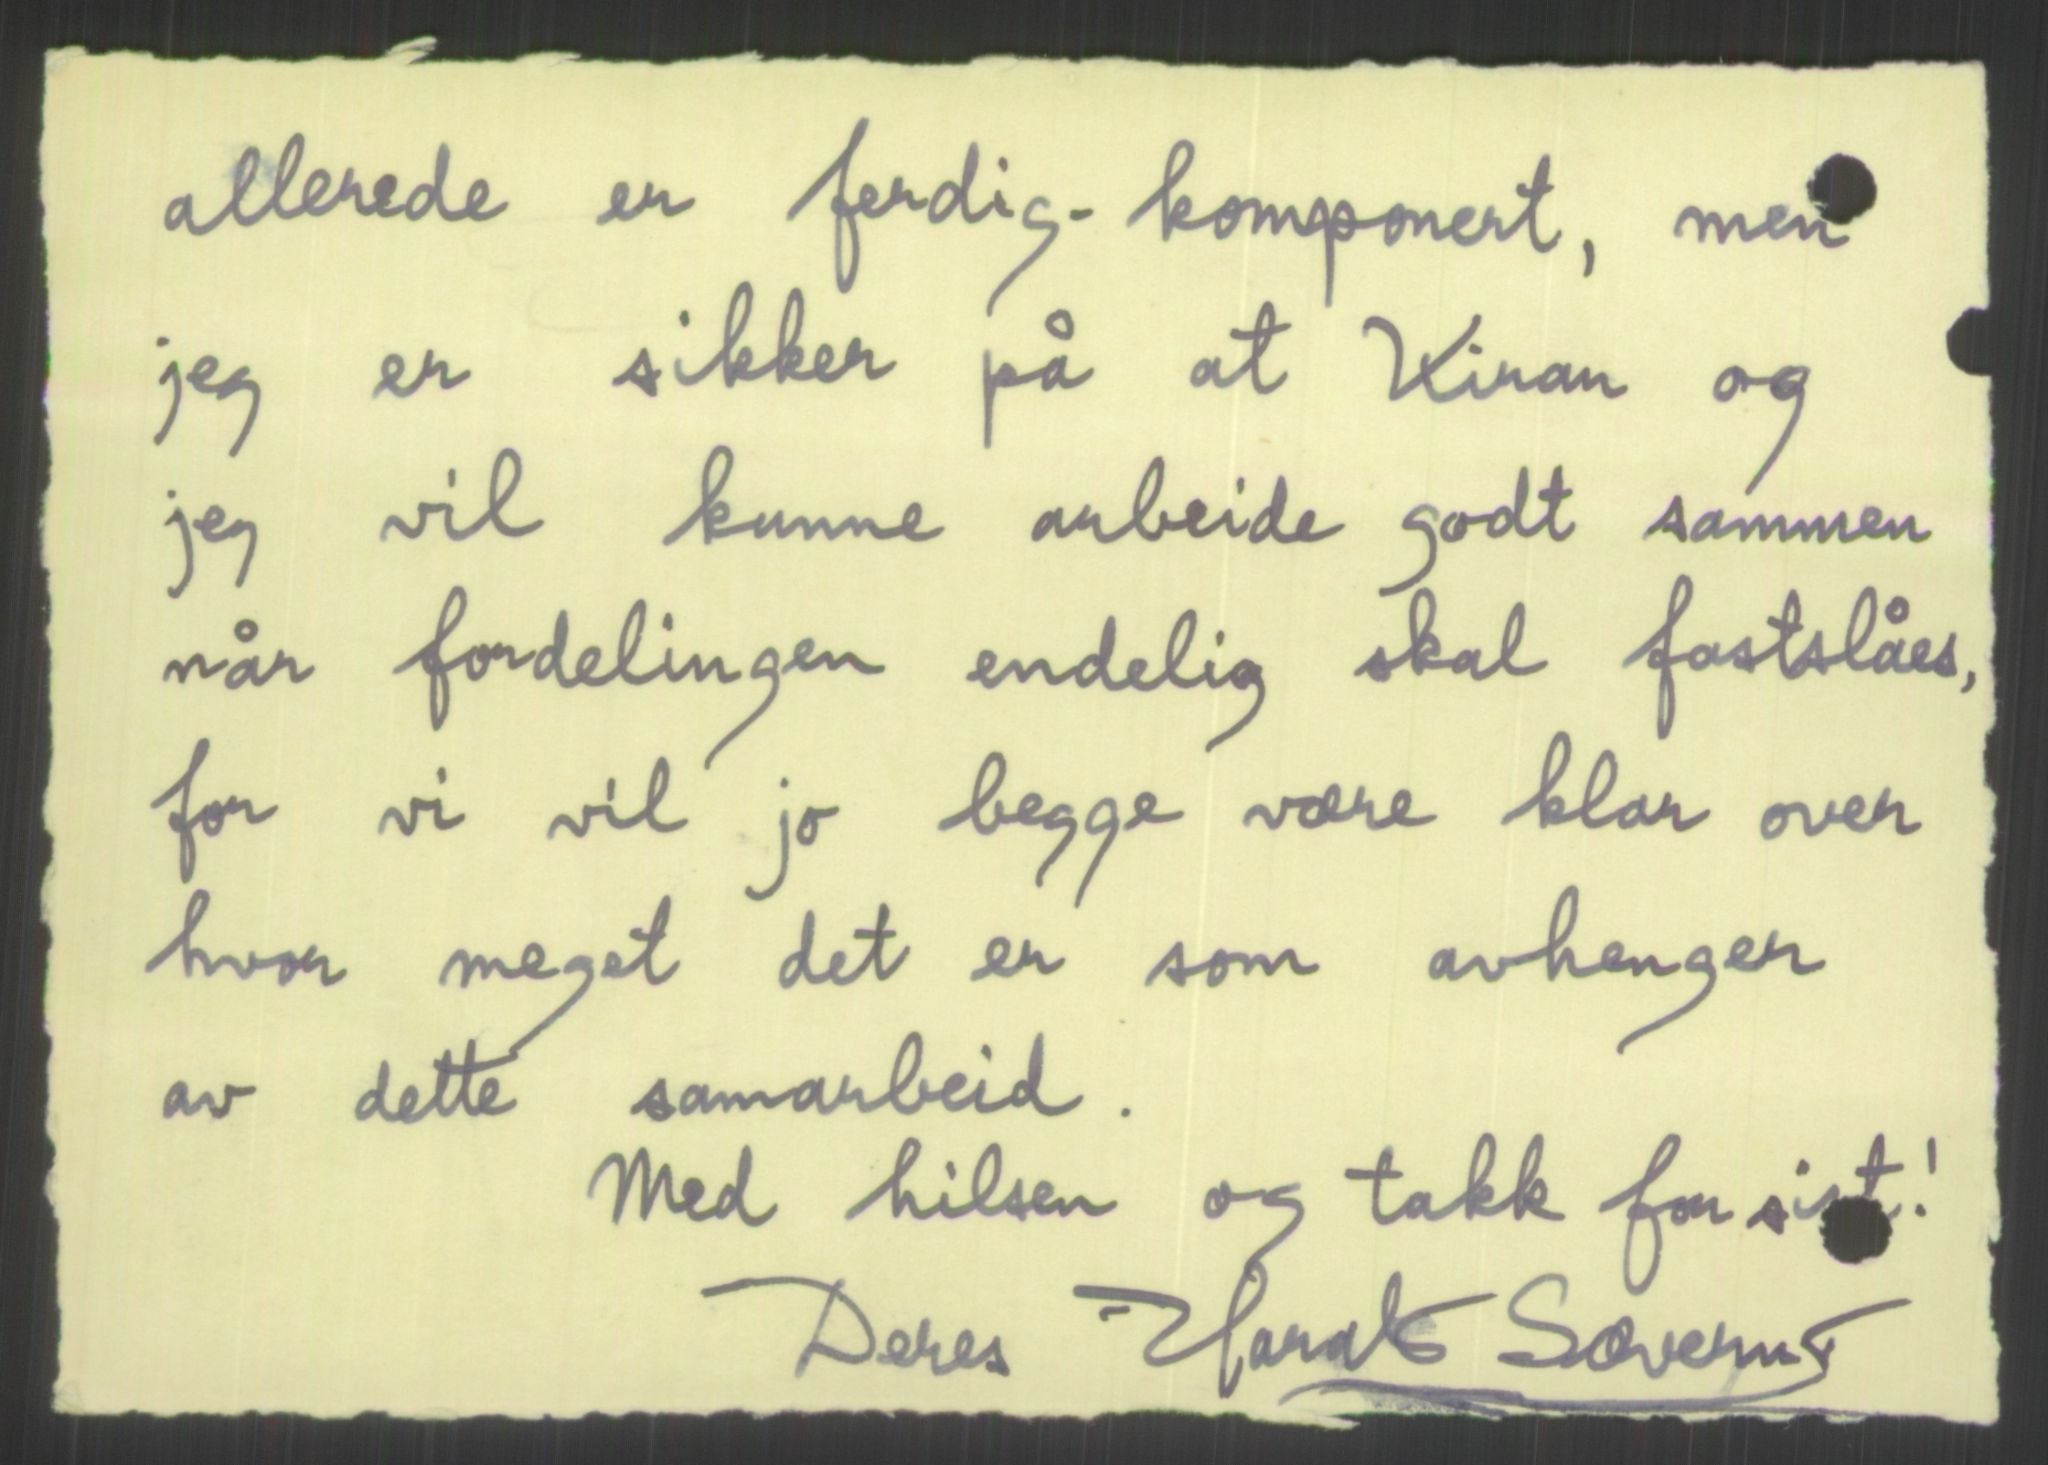 allerede er ferdig-komponert, men
jeg er sikker på at Kiran og
jeg vil kunne arbeide godt sammen
når fordelingen endelig skal fastslåes,
for vi vil jo begge være klar over
hvor meget det er som avhenger
av dette samarbeid.
Med hilsen og takk for sist!
Deres Harald Sæverud